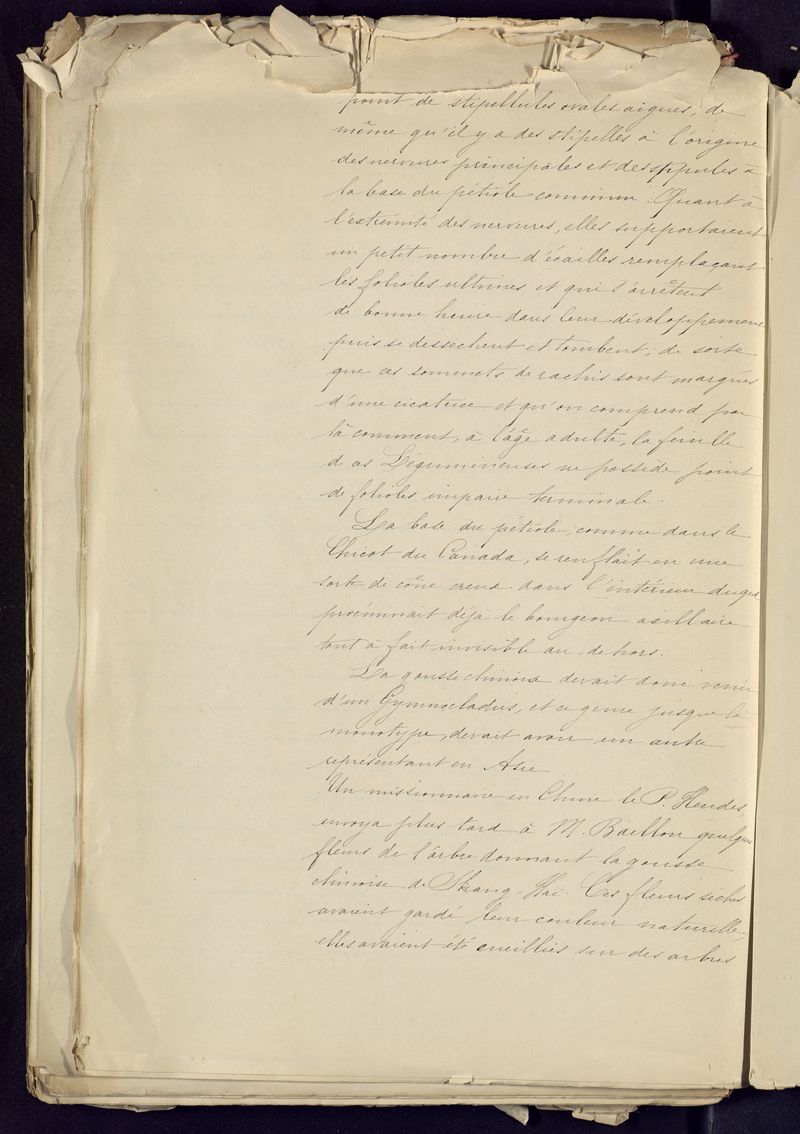 point de stipellules ovales aigues, de
même qu'il y a des stipelles à l'origine
des nervures principales et des stipules à
la base du pétiole commun. Quant à
l'extrémité des nervures, elles supportaient
un petit nombre d'écailles remplaçant
les folioles ultimes et qui s'arrêtent
de bonne heure dans leur développement
puis se dessèchent et tombent; de sorte
que ces sommets de rachis sont marqués
d'une cicatrice et qu'on comprend par
là comment, à l'âge adulte, la feuille
de ces Légumineuses ne possède point
de folioles impaire terminale.
La base du pétiole, comme dans le
Chicot du Canada, se renflait en une
sorte de cône creux dans l'intérieur duquel
proéminait déjà le bourgeon axillaire
tout à fait invisible au-dehors.
La gousse chinoise devait donc venir
d'un Gymnocladus, et ce genre jusque là
monotype, devait avoir un autre
représentant en Asie
Un missionnaire en Chine le P. Heudes,
envoya plus tard à M. Baillon quelques
fleurs de l'arbre donnant la gousse
chinoise de Shang-Haï. Ces fleurs sèches
avaient gardé leur couleur naturelle;
elles avaient été cueillies sur des arbres